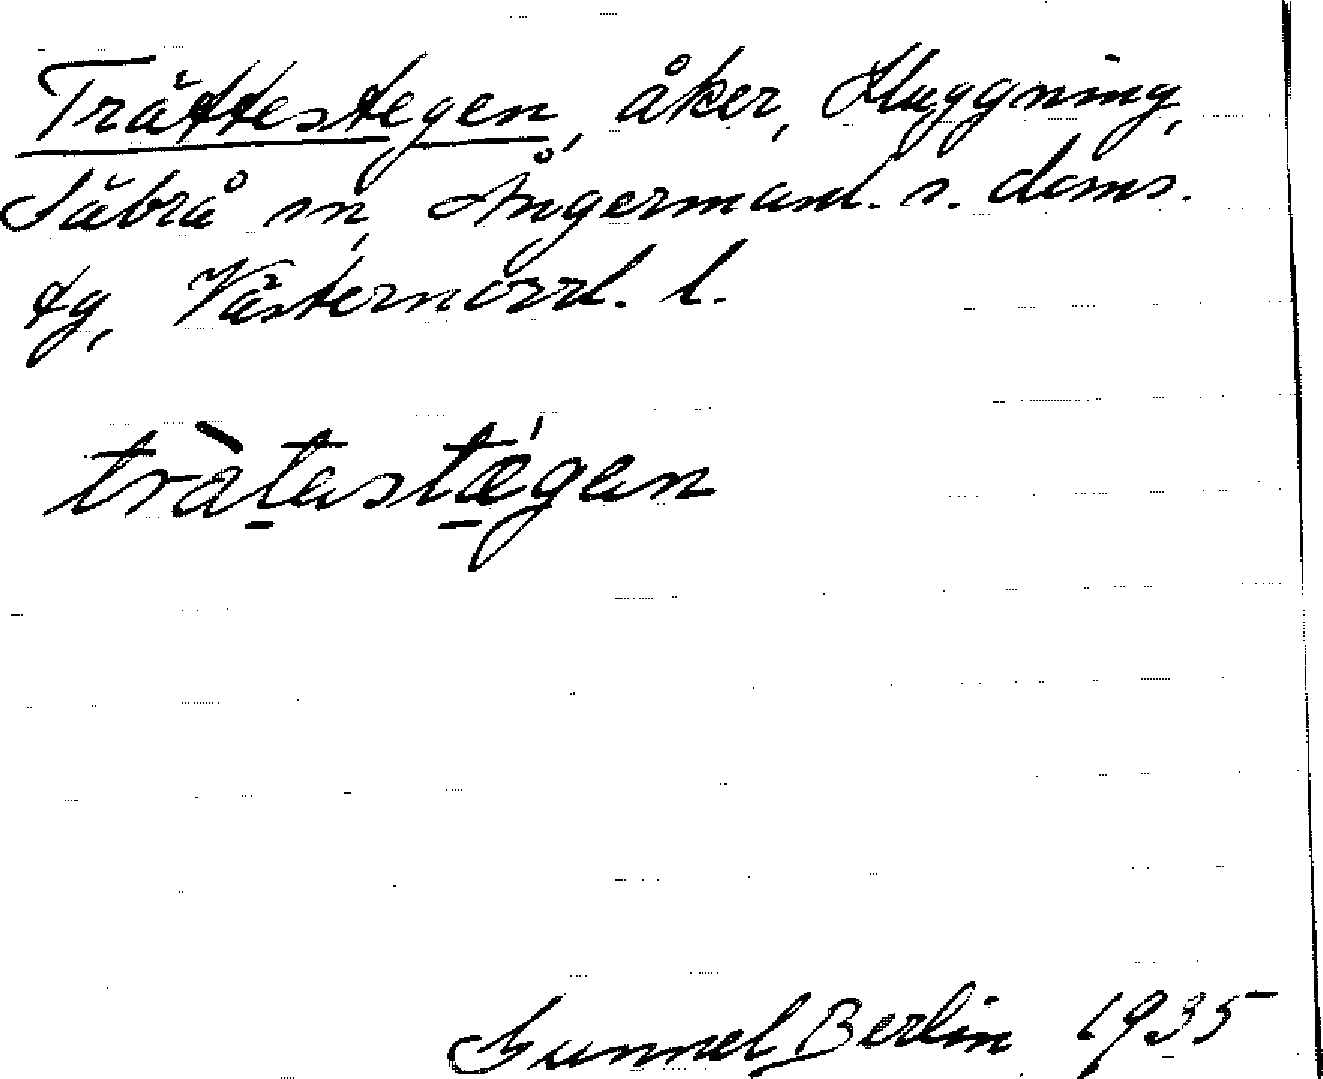 Trättestegen, åker, Huggning,
Säbrå sn, Ångermanl. s. doms.
tg, Västernorrl. l.
tràtastǽgan
Gunnel Berlin 1935